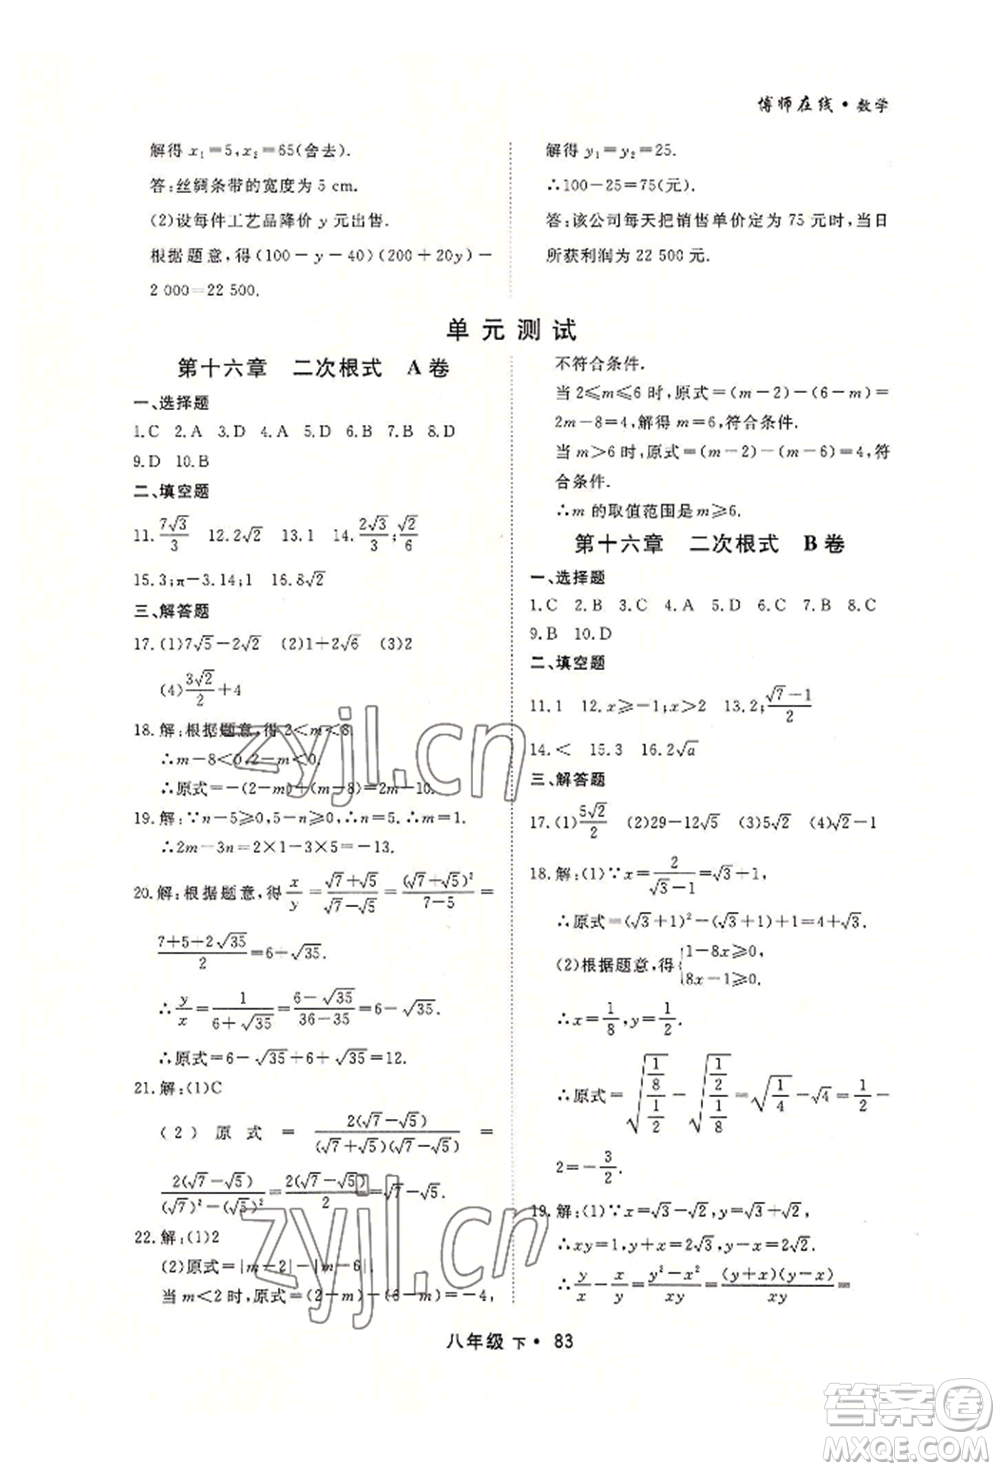 博师在线·数学
解得 x₁=5,x₂=65(舍去).
答:丝绸条带的宽度为 5 cm.
(2)设每件工艺品降价 y 元出售.
根据题意,得(100-y-40)(200+20y)-
2 000=22 500.
解得 y₁=y₂=25.
∴100-25=75(元).
答:该公司每天把销售单价定为 75 元时,当日
所获利润为 22 500 元.
单元测试
第十六章 二次根式 A卷
一、选择题
1.C 2.A 3.D 4.A 5.D 6.B 7.B 8.D
9.D 10.B
二、填空题
11.7√3/3 12.2√2 13.1 14.2√3/3;√2/6
15.3;π-3.14;1 16.8√2
三、解答题
17.(1)7√5-2√2 (2)1+2√6 (3)2
(4)3√2/2+4
18.解:根据题意,得 2<m<8.
∴m-8<0,2-m<0.
∴原式=-(2-m)+(m-8)=2m-10.
19.解:∵n-5≥0,5-n≥0,∴n=5.∴m=1.
∴2m-3n=2×1-3×5=-13.
20.解:根据题意,得 x/y=(√7+√5)/(√7-√5)=(√7+√5)²/(7-5)=
(7+5+2√35)/2=6+√35.
∴y/x=1/(6+√35)=(6-√35)/(36-35)=6-√35.
∴原式=6-√35+6+√35=12.
21.解:(1)C
(2)原式=2(√7-√5)/((√7+√5)(√7-√5))=
2(√7-√5)/((√7)²-(√5)²)=2(√7-√5)/2=√7-√5.
22.解:(1)2
(2)原式=|m-2|-|m-6|.
当 m<2 时,原式=(2-m)-(6-m)=-4,
不符合条件.
当 2≤m≤6 时,原式=(m-2)-(6-m)=
2m-8=4,解得 m=6,符合条件.
当 m>6 时,原式=(m-2)-(m-6)=4,符
合条件.
∴m 的取值范围是 m≥6.
第十六章 二次根式 B卷
一、选择题
1.C 2.B 3.B 4.A 5.D 6.D 7.B 8.C
9.B 10.D
二、填空题
11.1 12.x≥-1;x>2 13.2;(√7-1)/2
14.< 15.3 16.2√a
三、解答题
17.(1)5√2/2 (2)29-12√5 (3)2 (4)√2-1
18.解:(1)∵x=2/(√3-1)=√3+1,
∴原式=(√3+1)²-(√3+1)+1=4+√3.
(2)根据题意,得{1-8x≥0,
8x-1≥0.
∴x=1/8,y=1/2.
∴原式=√((1/8)/(1/2))-√((1/2)/(1/8))=√(1/4)-√4=1/2-
2=-3/2.
19.解:(1)∵x=√3-√2,y=√3+√2,
∴xy=1,x+y=2√3,y-x=2√2.
∴y/x-x/y=(y²-x²)/xy=(y+x)(y-x)/xy=
八年级 下·83
zyjl.cn
zyjl.cn
答案圈
MXQE.COM